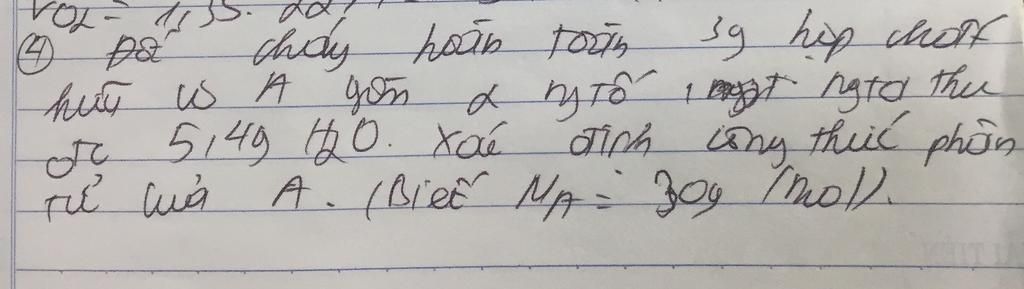 VO2 = 1,35. 22,
④ Đốt cháy hoàn toàn 3g hợp chất
hữu cơ A gồm 2 ng tố, ngta thu
đc 5,4g H2O. Xác định công thức phân
tử của A. (Biết MA = 30g /mol).